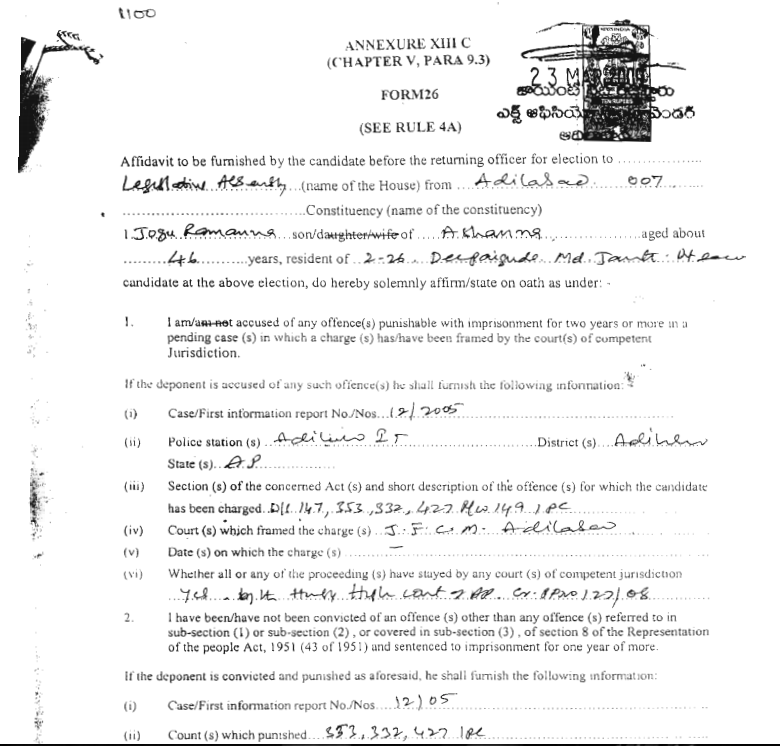 1100
ANNEXURE XIII C
(CHAPTER V, PARA 9.3)
FORM26
(SEE RULE 4A)
23 MAR
జాయింట్
ఎక్స్ అఫిషియో
Affidavit to be furnished by the candidate before the returning officer for election to ..................
Legislative Assembly...(name of the House) from ....Adilabad 007
...........................................Constituency (name of the constituency)
I Jogu Ramanna son/daughter/wife of ....Ashanna..................aged about
.........46............years, resident of 2-26, Deepaiguda Md. Jainath.
candidate at the above election, do hereby solemnly affirm/state on oath as under: -
1. I am/am not accused of any offence(s) punishable with imprisonment for two years or more in a
pending case (s) in which a charge (s) has/have been framed by the court(s) of competent
Jurisdiction.
If the deponent is accused of any such offence(s) he shall furnish the following information:
(i) Case/First information report No./Nos...12/2005
(ii) Police station (s) ..Adilabad I T..................District (s)...Adilabad
State (s)...A.P
(iii) Section (s) of the concerned Act (s) and short description of the offence (s) for which the candidate
has been charged..U/s. 147, 353, 332, 427 R/w 149 IPC
(iv) Court (s) which framed the charge (s) ..J. F. C. M. Adilabad
(v) Date (s) on which the charge (s) ......–
(vi) Whether all or any of the proceeding (s) have stayed by any court (s) of competent jurisdiction
Yes. by the High Court of AP.
2. I have been/have not been convicted of an offence (s) other than any offence (s) referred to in
sub-section (1) or sub-section (2) , or covered in sub-section (3) , of section 8 of the Representation
of the people Act, 1951 (43 of 1951) and sentenced to imprisonment for one year of more.
If the deponent is convicted and punished as aforesaid, he shall furnish the following information:
(i) Case/First information report No./Nos...12/05
(ii) Count (s) which punished....353, 332, 427 IPC